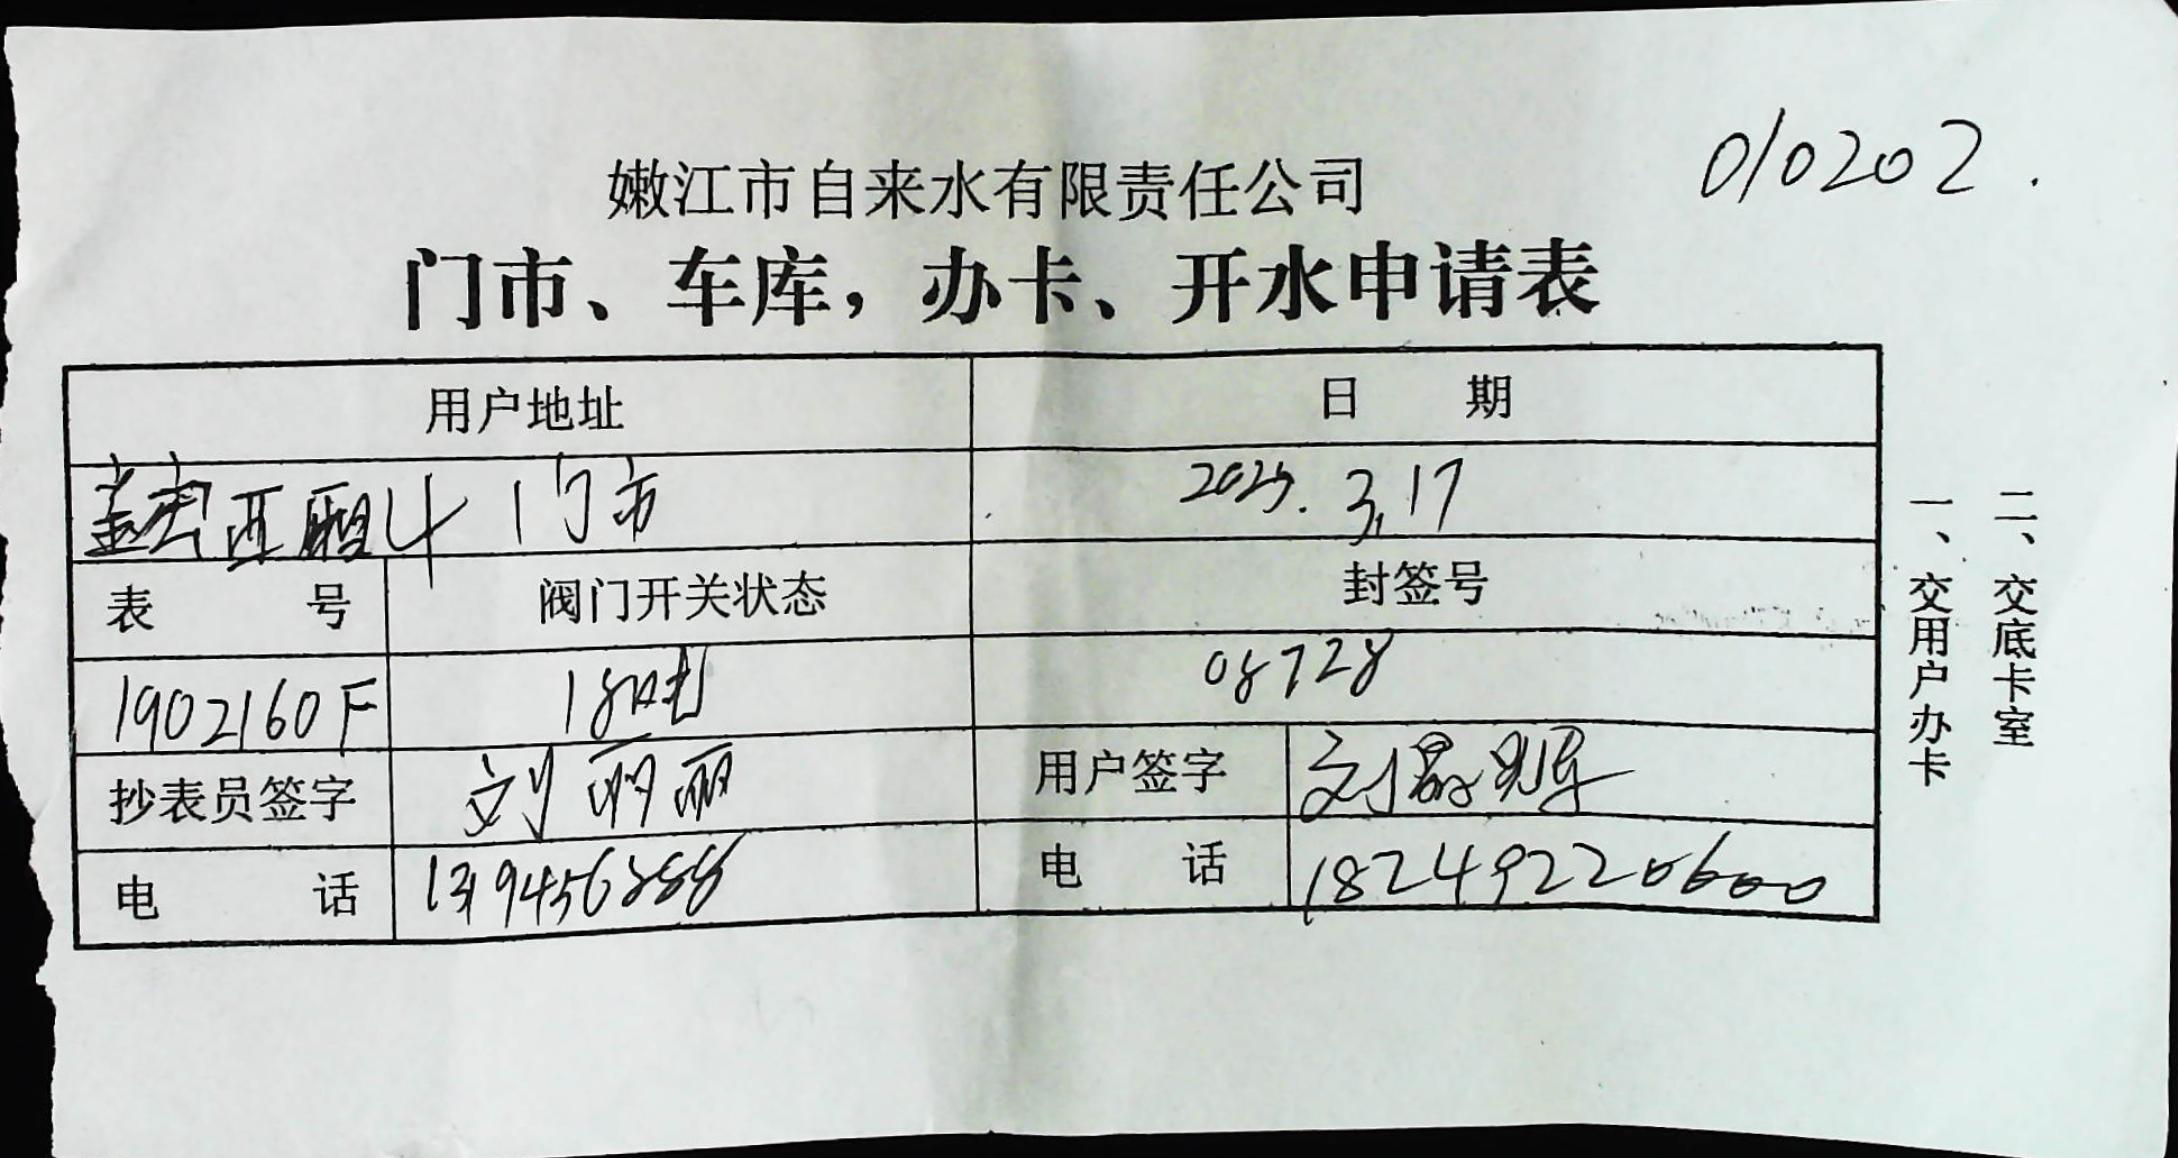 010202.
嫩江市自来水有限责任公司
门市、车库，办卡、开水申请表
用户地址 日 期
西厢 门市 2025.3.17
表 号 阀门开关状态 封签号
1902160F 18吨 08728
抄表员签字 刘丽丽 用户签字 刘
电 话 电 话 18249220600
一、交用户办卡
二、交底卡室